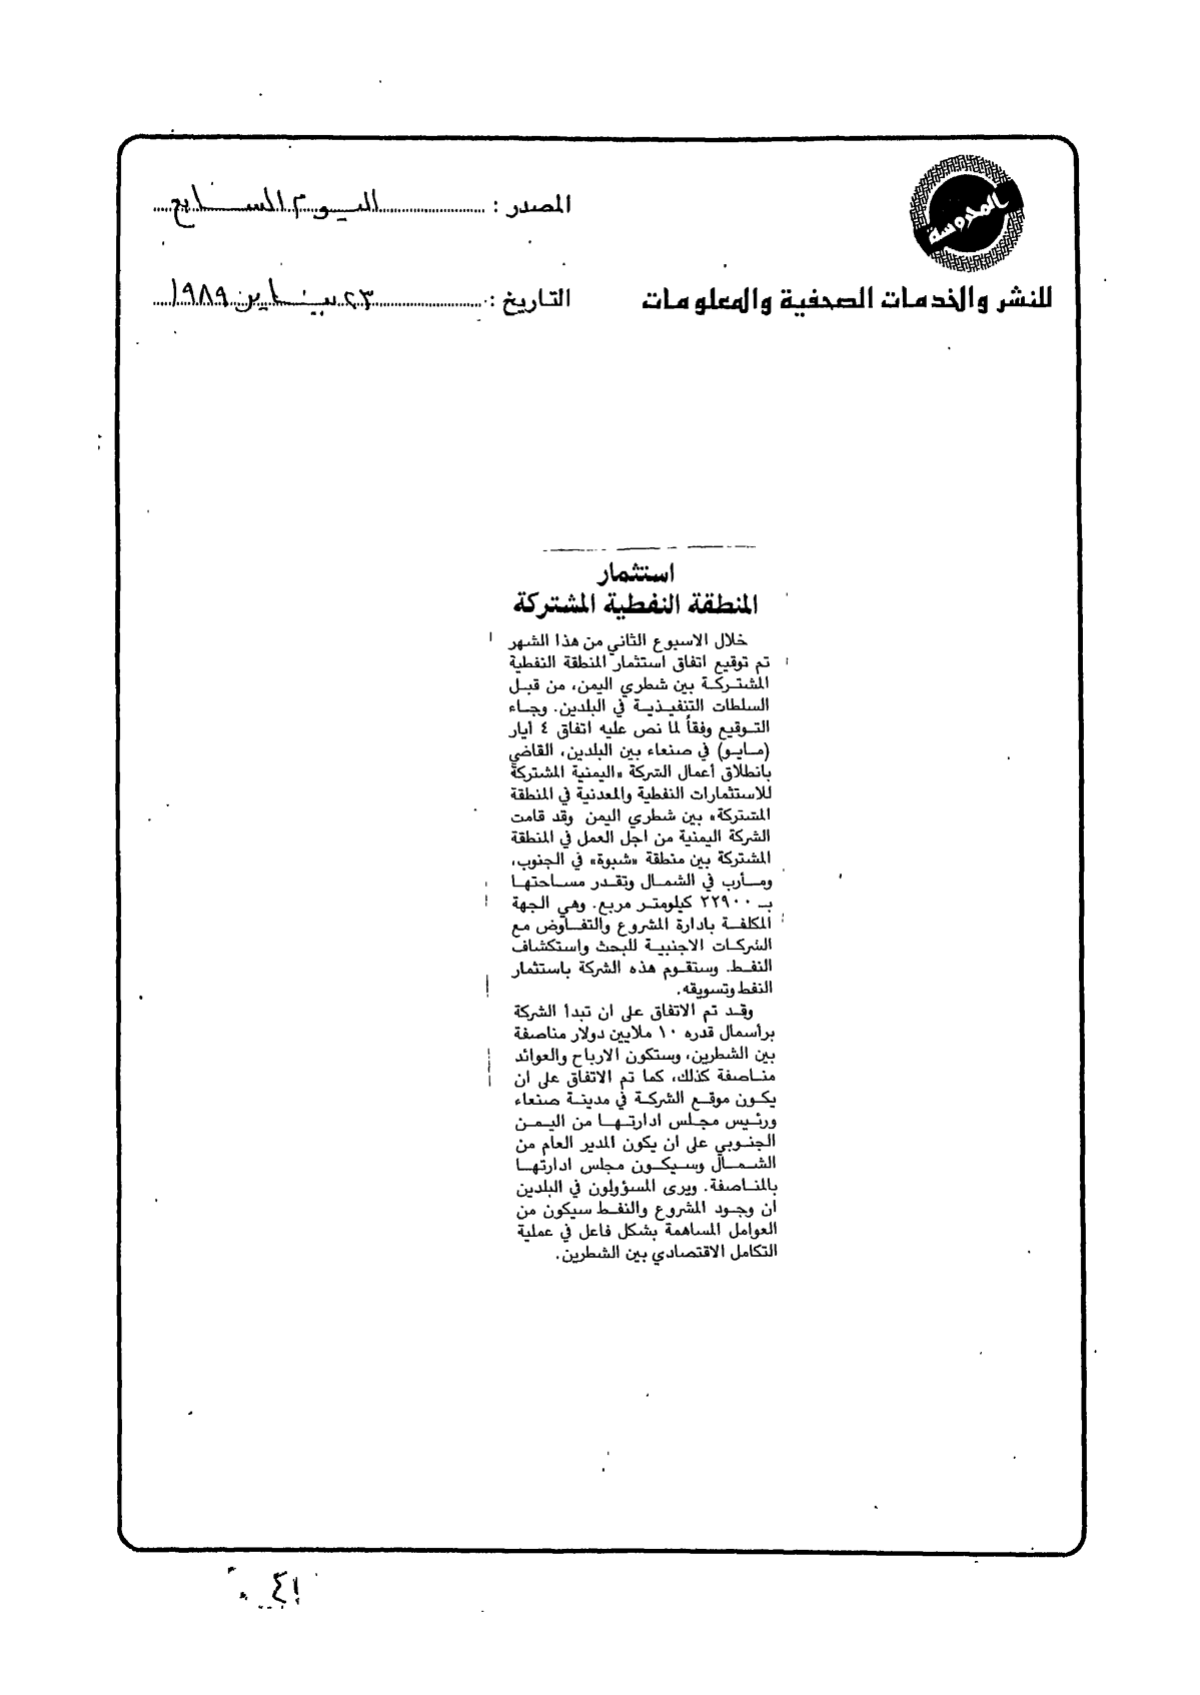 المحروسة
المصدر : اليوم السابع
للنشر والخدمات الصحفية والمعلومات
التاريخ : ٢٣ يناير ١٩٨٩
استثمار
المنطقة النفطية المشتركة
خلال الاسبوع الثاني من هذا الشهر
تم توقيع اتفاق استثمار المنطقة النفطية
المشتركة بين شطري اليمن، من قبل
السلطات التنفيذية في البلدين. وجاء
التوقيع وفقاً لما نص عليه اتفاق ٤ أيار
(مايو) في صنعاء بين البلدين، القاضي
بانطلاق أعمال الشركة «اليمنية المشتركة
للاستثمارات النفطية والمعدنية في المنطقة
المشتركة» بين شطري اليمن وقد قامت
الشركة اليمنية من اجل العمل في المنطقة
المشتركة بين منطقة «شبوة» في الجنوب،
ومأرب في الشمال وتقدر مساحتها
بـ ٢٢٩٠٠ كيلومتر مربع. وهي الجهة
المكلفة بادارة المشروع والتفاوض مع
الشركات الاجنبية للبحث واستكشاف
النفط. وستقوم هذه الشركة باستثمار
النفط وتسويقه.
وقد تم الاتفاق على ان تبدأ الشركة
برأسمال قدره ١٠ ملايين دولار مناصفة
بين الشطرين، وستكون الارباح والعوائد
مناصفة كذلك، كما تم الاتفاق على ان
يكون موقع الشركة في مدينة صنعاء
ورئيس مجلس ادارتها من اليمن
الجنوبي على ان يكون المدير العام من
الشمال وسيكون مجلس ادارتها
بالمناصفة. ويرى المسؤولون في البلدين
ان وجود المشروع والنفط سيكون من
العوامل المساهمة بشكل فاعل في عملية
التكامل الاقتصادي بين الشطرين.